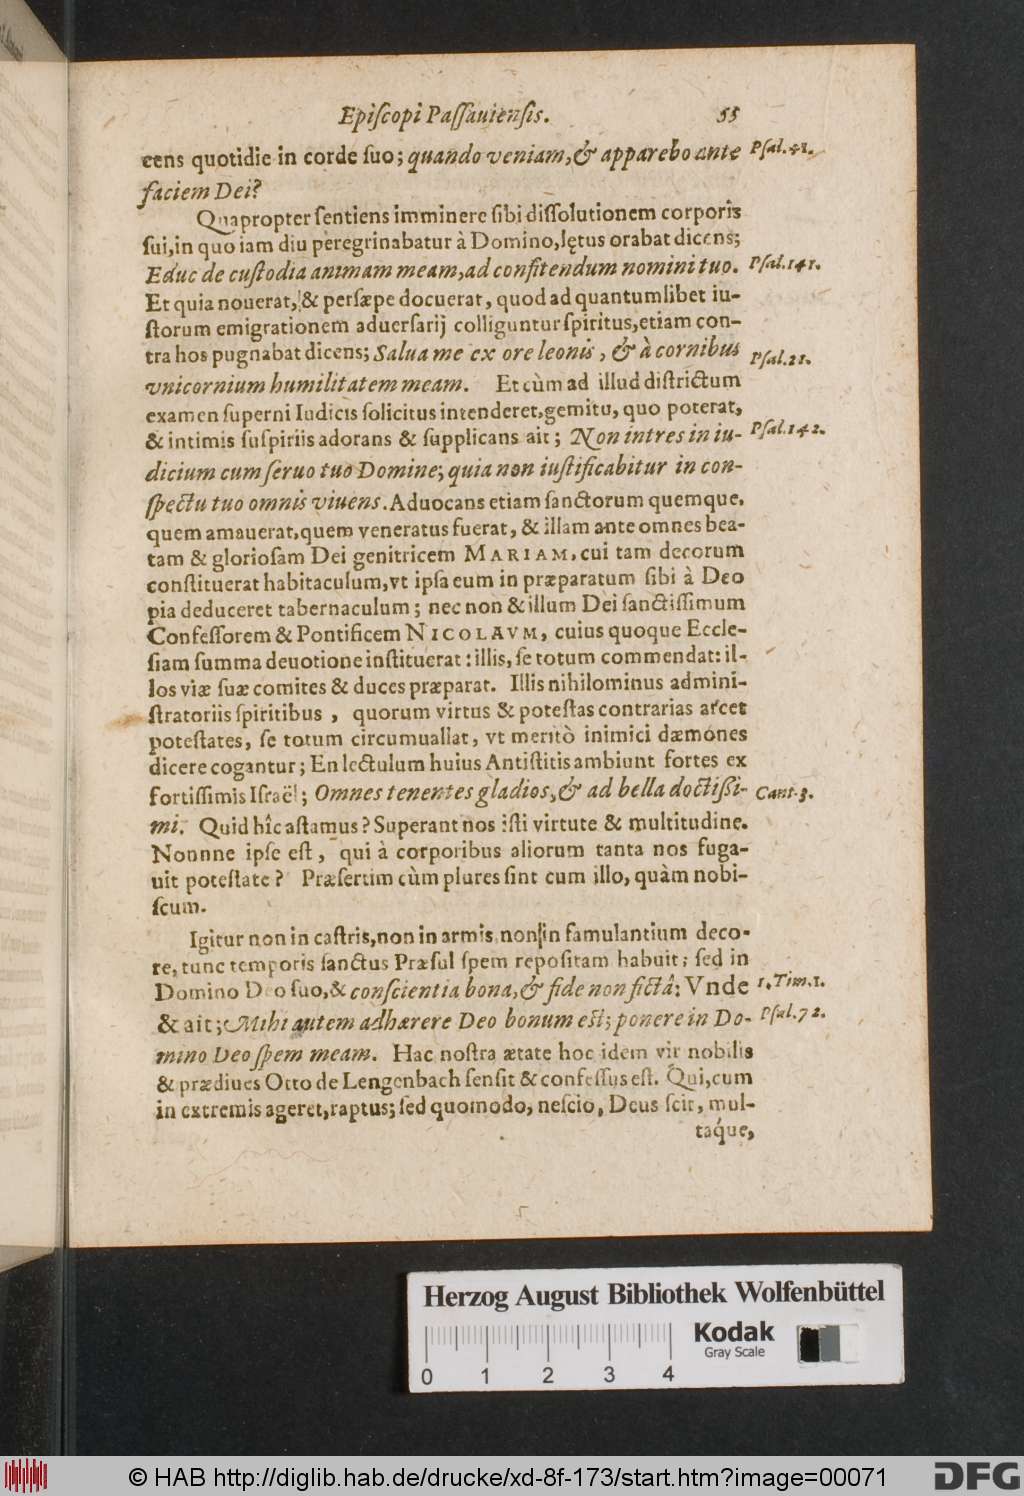 Epiſcopi Paſſauienſis. 55
cens quotidie in corde ſuo; quando veniam, & apparebo ante Pſal. 41.
faciem Dei?
Quapropter ſentiens imminere ſibi diſſolutionem corporis
ſui, in quo iam diu peregrinabatur à Domino, lętus orabat dicens;
Educ de cuſtodia animam meam, ad confitendum nomini tuo. Pſal. 141.
Et quia nouerat, & perſæpe docuerat, quod ad quantumlibet iu-
ſtorum emigrationem aduerſarij colliguntur ſpiritus, etiam con-
tra hos pugnabat dicens; Salua me ex ore leonis, & à cornibus Pſal. 21.
vnicornium humilitatem meam. Et cùm ad illud diſtrictum
examen ſuperni Iudicis ſolicitus intenderet, gemitu, quo poterat,
& intimis ſuſpiriis adorans & ſupplicans ait; Non intres in iu- Pſal. 142.
dicium cum ſeruo tuo Domine; quia non iuſtificabitur in con-
ſpectu tuo omnis viuens. Aduocans etiam ſanctorum quemque,
quem amauerat, quem veneratus fuerat, & illam ante omnes bea-
tam & glorioſam Dei genitricem MARIAM, cui tam decorum
conſtituerat habitaculum, vt ipſa eum in præparatum ſibi à Deo
pia deduceret tabernaculum; nec non & illum Dei ſanctiſſimum
Confeſſorem & Pontificem NICOLAVM, cuius quoque Eccle-
ſiam ſumma deuotione inſtituerat: illis, ſe totum commendat: il-
los viæ ſuæ comites & duces præparat. Illis nihilominus admini-
ſtratoriis ſpiritibus, quorum virtus & poteſtas contrarias arcet
poteſtates, ſe totum circumuallat, vt meritò inimici dæmones
dicere cogantur; En lectulum huius Antiſtitis ambiunt fortes ex
fortiſſimis Iſraël; Omnes tenentes gladios, & ad bella doctißi- Cant. 3.
mi. Quid hîc aſtamus? Superant nos iſti virtute & multitudine.
Nonnne ipſe eſt, qui à corporibus aliorum tanta nos fuga-
uit poteſtate? Præſertim cùm plures ſint cum illo, quàm nobi-
ſcum.
Igitur non in caſtris, non in armis, non in famulantium deco-
re, tunc temporis ſanctus Præſul ſpem repoſitam habuit; ſed in
Domino Deo ſuo, & conſcientia bona, & fide non fictâ: Vnde 1. Tim. 1.
& ait; Mihi autem adhærere Deo bonum eſt; ponere in Do- Pſal. 72.
mino Deo ſpem meam. Hac noſtra ætate hoc idem vir nobilis
& prædiues Otto de Lengenbach ſenſit & confeſſus eſt. Qui, cum
in extremis ageret, raptus; ſed quomodo, neſcio, Deus ſcit, mul-
taque,
Herzog August Bibliothek Wolfenbüttel
Kodak
Gray Scale
0 1 2 3 4
© HAB http://diglib.hab.de/drucke/xd-8f-173/start.htm?image=00071
DFG